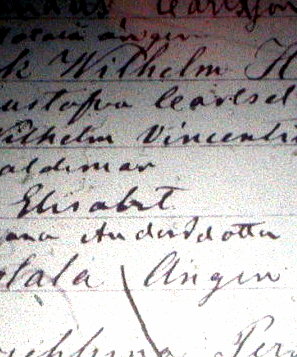 Carlson
ängen
k Wilhelm H
ustafva Carlsd
Vilhelm Vincenti
aldemar
Elisabet
ana Andersdotter
lala Ängen
Per